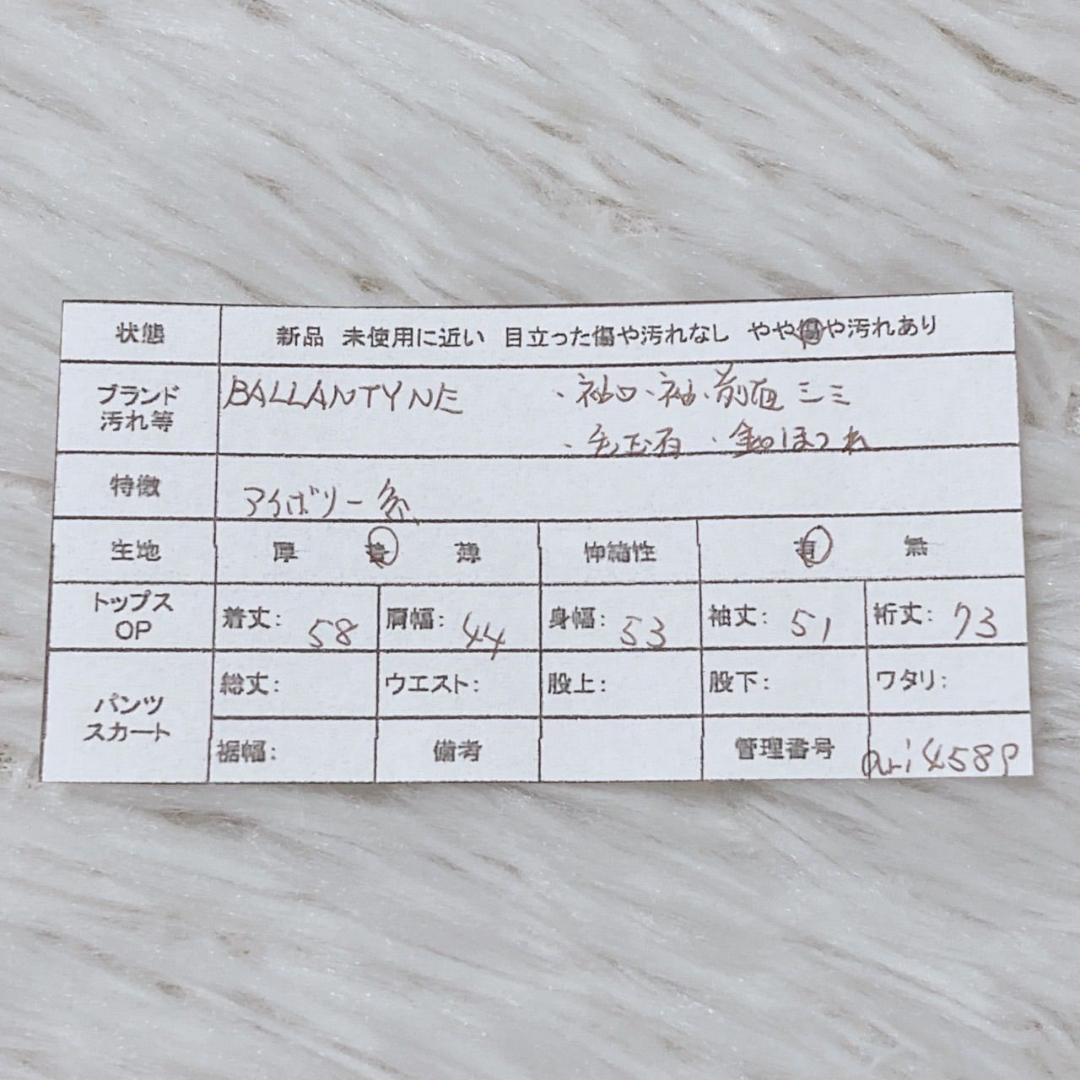 状態 新品 未使用に近い 目立った傷や汚れなし やや傷や汚れあり
ブランド 汚れ等 BALLANTYNE ・袖口・袖・前面シミ
・毛玉有 ・釦ほつれ
特徴 アイボリー系
生地 厚 普 薄 伸縮性 有 無
トップス OP 着丈: 58 肩幅: 44 身幅: 53 袖丈: 51 裄丈: 73
パンツ スカート 総丈: ウエスト: 股上: 股下: ワタリ:
裾幅: 備考 管理番号 ari4589